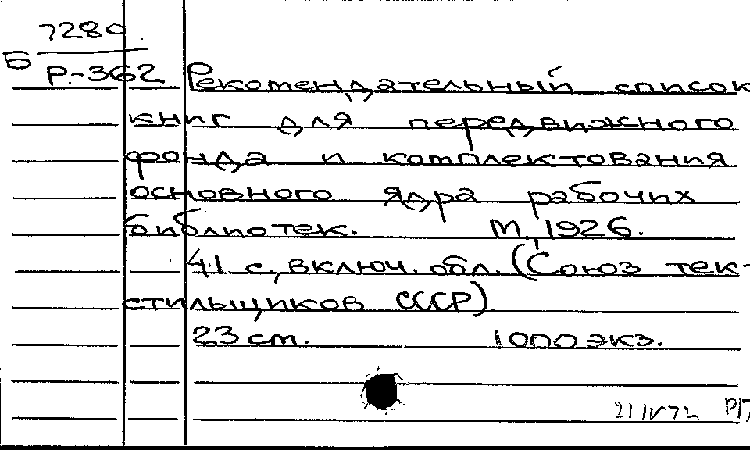 7280.
Б Р-362 Рекомендательный список
книг для передвижного
фонда и комплектования
основного ядра рабочих
библиотек. М, 1926.
41 с, включ. обл. (Союз тек-
стильщиков СССР)
23 ст. 1000 экз.
21 IV 72